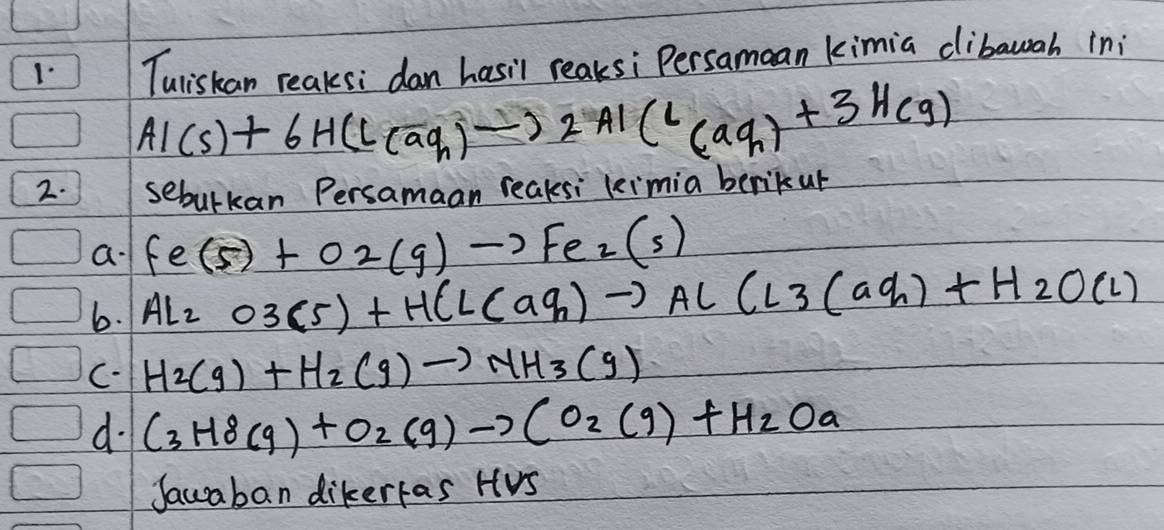 1. Tuliskan reaksi dan hasil reaksi Persamaan kimia dibawah ini
Al(s) + 6HCl(aq) → 2 AlCl(aq) + 3H(g)
2. seburkan Persamaan reaksi kimia berikut
a. Fe(s) + O2(g) → Fe2(s)
b. AL2 O3(s) + HCL(aq) → ALCL3(aq) + H2O(L)
c. H2(g) + H2(g) → NH3(g)
d. C3H8(g) + O2(g) → CO2(g) + H2Oa
Jawaban dikertas HVS